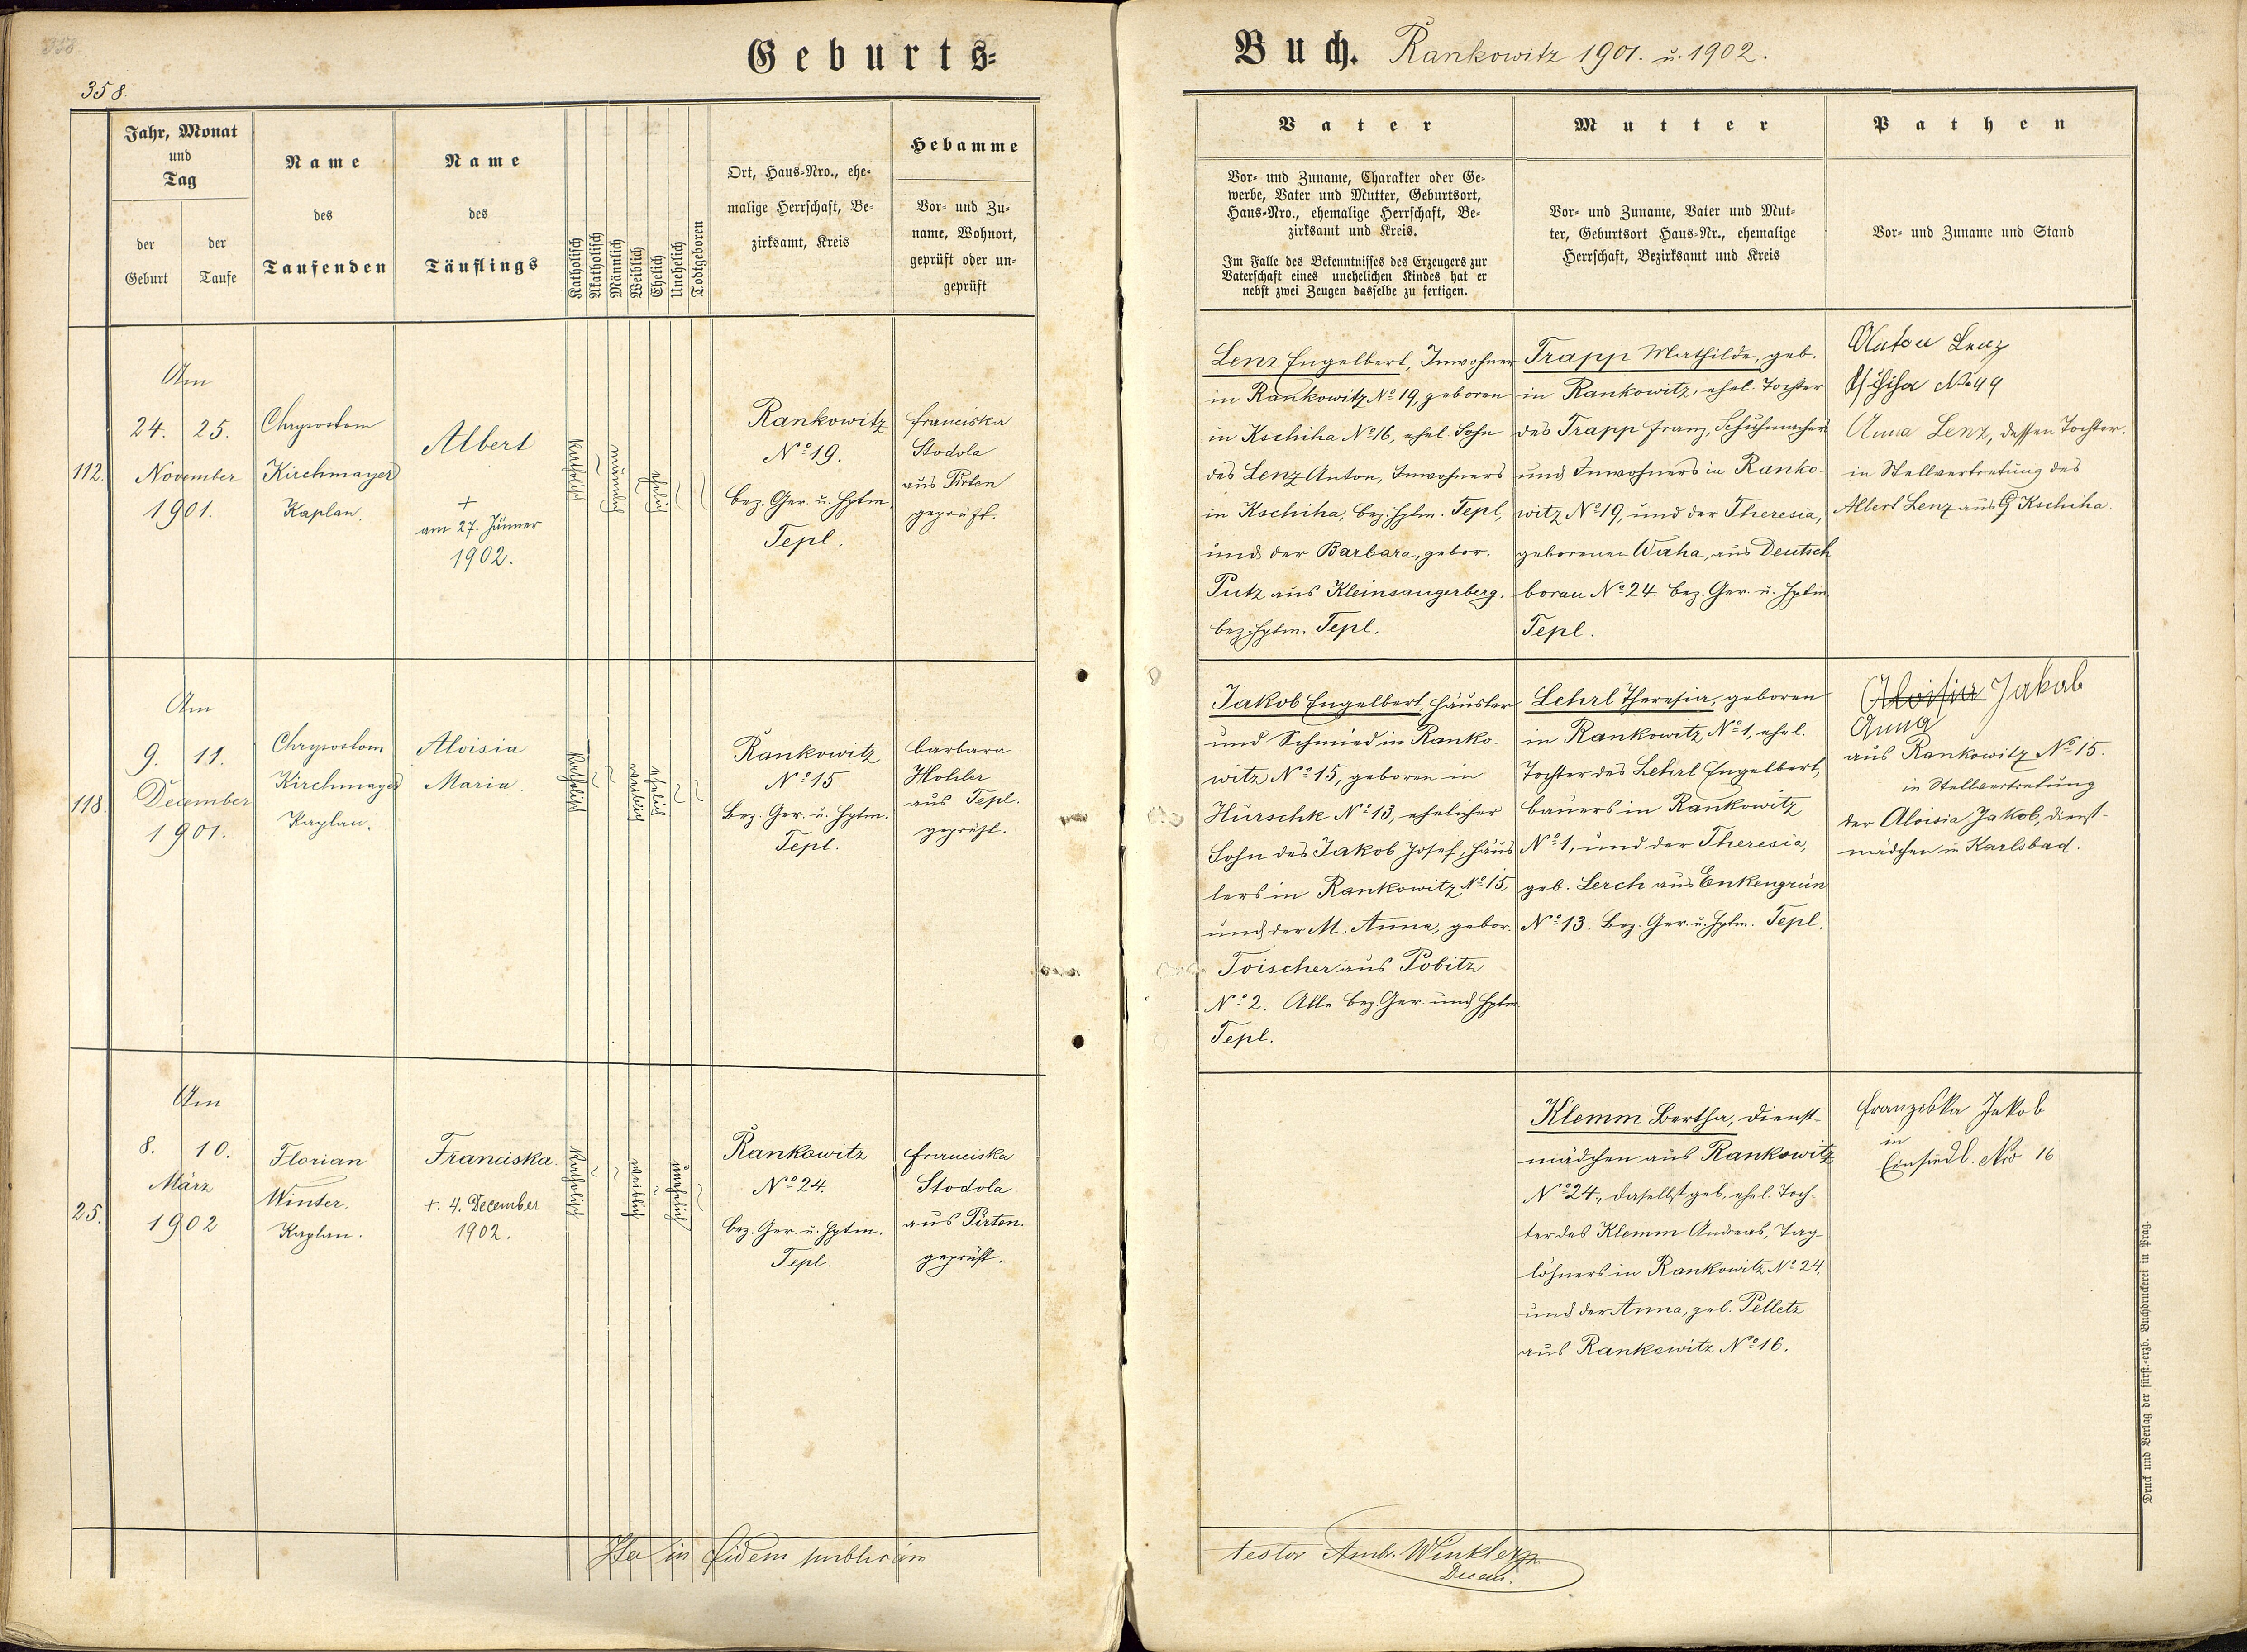 358.
358.
Geburts=
Jahr, Monat
und
Tag
der
Geburt
der
Taufe
Name
des
Taufenden
Name
des
Täuflings
Katholisch
Akatholisch
Männlich
Weiblich
Ehelich
Unehelich
Todtgeboren
Ort, Haus=Nro., ehe=
malige Herrschaft, Be=
zirksamt, Kreis
Hebamme
Vor= und Zu=
name, Wohnort,
geprüft oder un=
geprüft
112.
Am
24. 25.
November
1901.
Chrysostom
Kirchmayer
Kaplan.
Albert
+
am 27. Jänner
1902.
katholisch
männlich
ehelich
Rankowitz
No 19.
bez. Ger. u. Hptm.
Tepl.
Franciska
Stodola
aus Pirten
geprüft.
118.
Am
9. 11.
December
1901.
Chrysostom
Kirchmayer
Kaplan.
Aloisia
Maria.
katholisch
weiblich
ehelich
Rankowitz
No 15.
Bez. Ger. u. Hptm.
Tepl.
Barbara
Hohler
aus Tepl.
geprüft.
25.
Am
8. 10.
März
1902
Florian
Winter.
Kaplan.
Franciska.
+. 4. December
1902.
katholisch
weiblich
unehelich
Rankowitz
No 24.
bez. Ger. u. Hptm.
Tepl.
Franciska
Stodola
aus Pirten.
geprüft.
Ita in fidem publicam
Buch. Rankowitz 1901. u. 1902.
Vater
Vor= und Zuname, Charakter oder Ge=
werbe, Vater und Mutter, Geburtsort,
Haus=Nro., ehemalige Herrschaft, Be=
zirksamt und Kreis.
Im Falle des Bekenntnisses des Erzeugers zur
Vaterschaft eines unehelichen Kindes hat er
nebst zwei Zeugen dasselbe zu fertigen.
Mutter
Vor= und Zuname, Vater und Mut=
ter, Geburtsort Haus=Nr., ehemalige
Herrschaft, Bezirksamt und Kreis
Pathen
Vor= und Zuname und Stand
Lenz Engelbert, Inwohner
in Rankowitz No 19, geboren
in Kschiha No 16, ehel. Sohn
des Lenz Anton, Inwohners
in Kschiha, bez. Hptm. Tepl,
und der Barbara, gebor.
Putz aus Kleinsangerberg.
bez. Hptm. Tepl.
Trapp Mathilde, geb.
in Rankowitz, ehel. Tochter
des Trapp Franz, Schuhmachers
und Inwohners in Ranko-
witz No 19, und der Theresia,
geborenen Waha, aus Deutsch
borau No 24. bez. Ger. u. Hptm
Tepl.
Anton Lenz
No 49
Anna Lenz, dessen Tochter.
in Stellvertretung des
Albert Lenz aus Kschiha.
Jakob Engelbert, Häusler
und Schmied in Ranko-
witz No 15, geboren in
Hurschk No 13, ehelicher
Sohn des Jakob Josef, Häus
lers in Rankowitz No 15,
und der M. Anna, gebor.
Toischer aus Pobitz
No 2. Alle bez. Ger. und Hptm
Tepl.
Lehrl Theresia, geboren
in Rankowitz No 1, ehel.
Tochter des Lehrl Engelbert,
Bauers in Rankowitz
No 1, und der Theresia,
geb. Lerch aus Enkengrün
No 13. Bez. Ger. u. Hptm. Tepl.
Aloisia Jakob
Anna
aus Rankowitz No 15.
in Stellvertretung
der Aloisia Jakob, Dienst-
mädchen in Karlsbad.
Klemm Bertha, Dienst-
mädchen aus Rankowitz
No 24, daselbst geb. ehel. Toch-
ter des Klemm Andreas, Tag-
löhners in Rankowitz No 24.
und der Anna, geb. Pelletz
aus Rankowitz No 16.
Franziska Jakob
in
Einsiedl. Nro 16
testor Ambr. Winkler
Dechant.
Druck und Verlag der fürst.=erzb. Buchdruckerei in Prag.